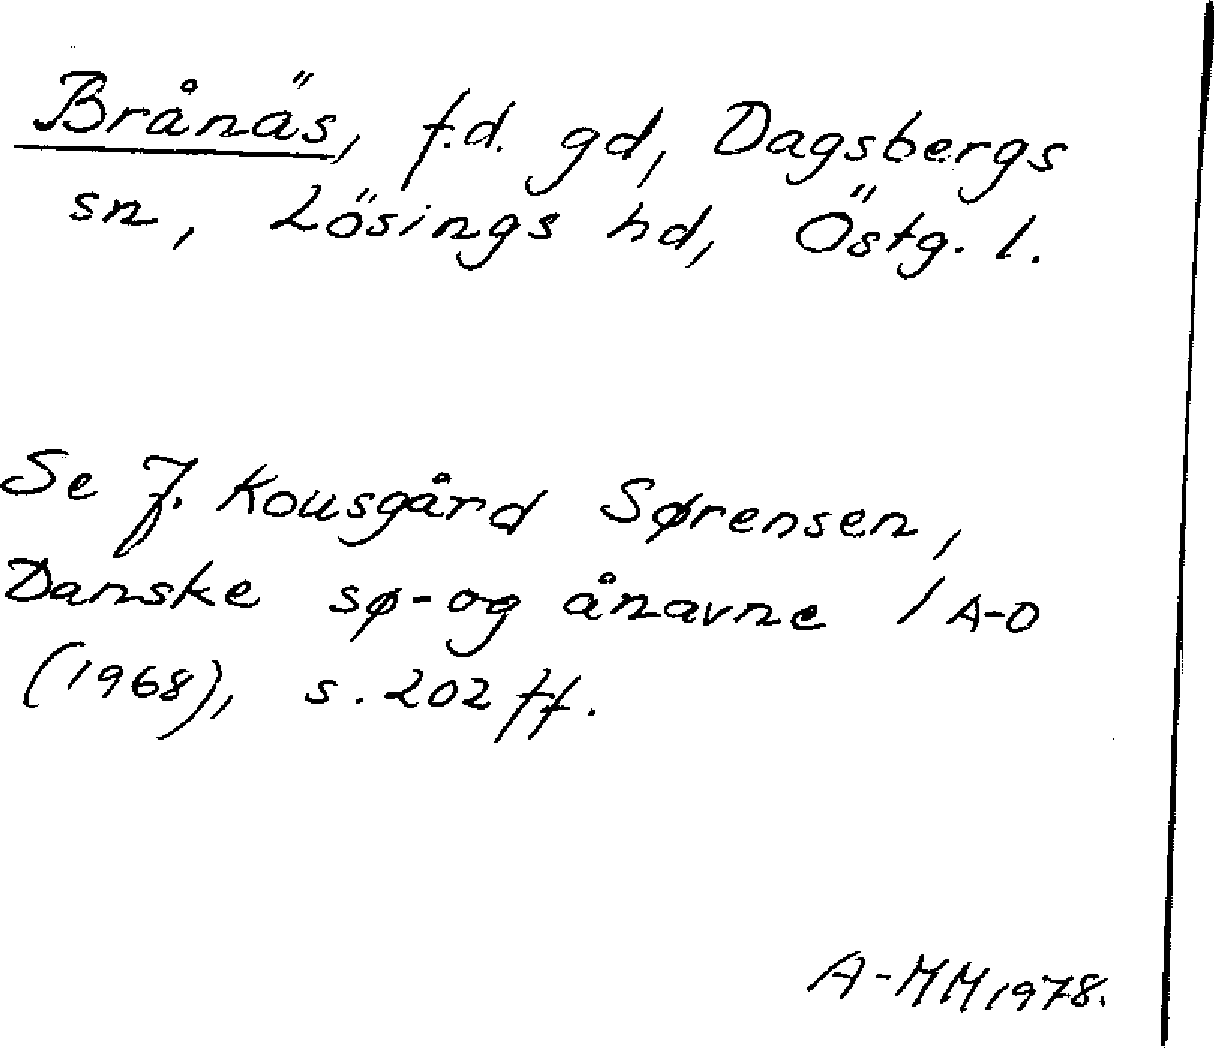 Brånäs, f.d. gd, Dagsbergs
sn, Lösings hd, Östg. l.
Se J. Kousgård Sørensen,
Danske sø- og ånavne 1 A-O
(1968), s. 202 ff.
A-MM 1978.